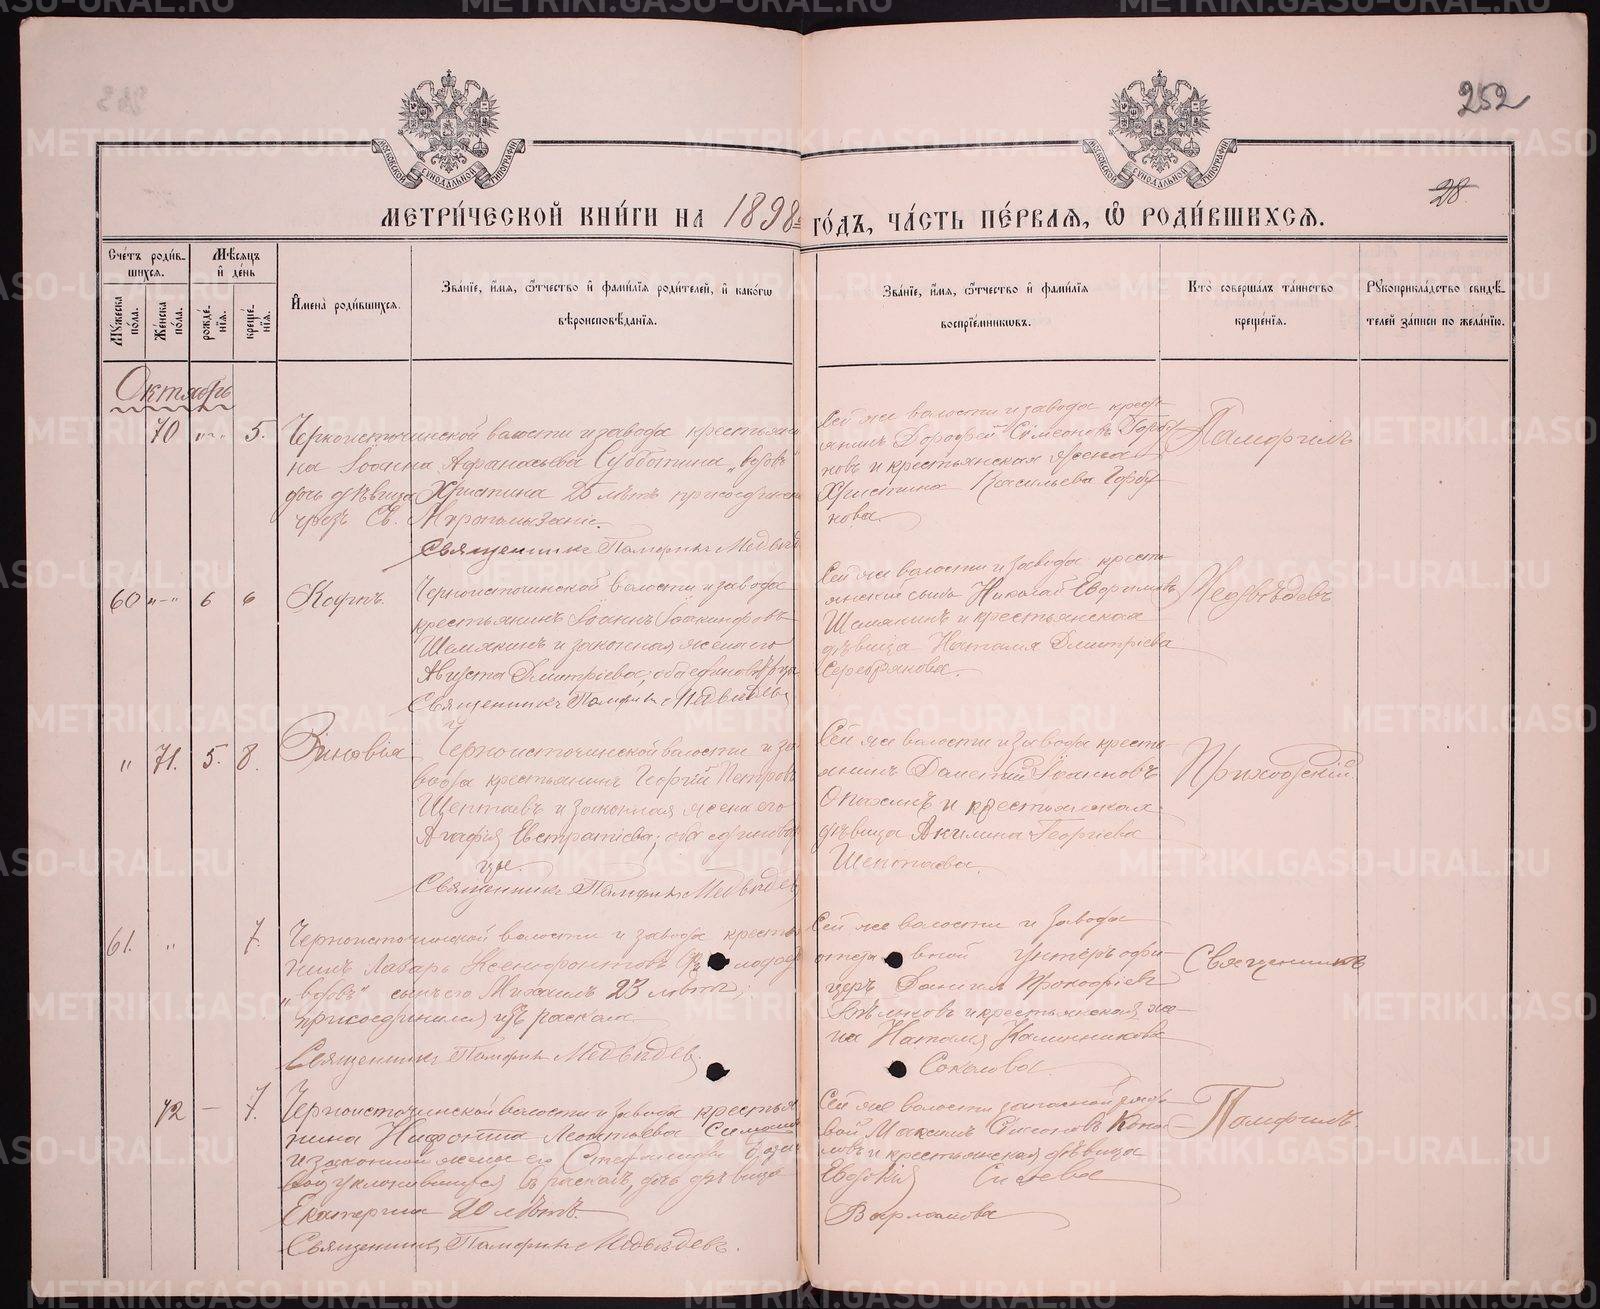 252
28
МЕТРИ́ЧЕСКОЙ КНИ́ГИ НА 1898 ГО́ДЪ, ЧА́СТЬ ПЕ́РВАѦ, Ѡ҆ РОДИ́ВШИХСѦ.
Сче́тъ роди́в-
шихсѧ.
Мѣ́сѧцъ
и҆ де́нь
Мꙋ́жеска по́ла.
Же́нска по́ла.
рожде́-
нїѧ.
креще́-
нїѧ.
И҆мена̀ роди́вшихсѧ.
Зва́нїе, и҆́мѧ, ѻ҆́тчество и҆ фами́лїѧ роди́телей, и҆ како́гѡ
вѣроисповѣ́данїѧ.
Зва́нїе, и҆́мѧ, ѻ҆́тчество и҆ фами́лїѧ
воспрїе́мникѡвъ.
Кто̀ соверша́лъ та́инство
креще́нїѧ.
Рꙋкоприкла́дство свидѣ́-
телей за́писи по жела́нїю.
Октябрь
70 „-„ 5.
Черноисточинской волости и завода крестьяни
на Іоанна Афанасьева Субботина
дочь дѣвица Христина 25 лѣтъ присоединена
чрезъ Св. Мѵропомазаніе.
Священникъ Памфилъ Медвѣд
Сей же волости и завода крест
янинъ Дорофей Симеоновъ Горбу
новъ и крестьянская жена
Христина Васильева Горбу
нова.
Памфилъ
60 „-„ 6 6
Карпъ.
Черноисточинской волости и завода
крестьянинъ Іоаннъ Іоакинфовъ
Шемякинъ и законная жена его
Августа Дмитріева, оба единовѣрцы
Священникъ Памфилъ Медвѣдевъ
Сей же волости и завода кресть
янскій сынъ Николай Ефремовъ
Шемякинъ и крестьянская
дѣвица Наталія Дмитріева
Серебрякова.
Медвѣдевъ
„ 71. 5. 8.
Зиновія
Черноисточинской волости и за
вода крестьянинъ Георгій Петровъ
Щептаевъ и законная жена его
Агафія Евстратіева, оба единовѣр
цы.
Священникъ Памфилъ Медвѣдевъ
Сей же волости и завода кресть-
янинъ Дометій Іоанновъ
и крестьянская
дѣвица Акилина Георгіева
Щептаева.
Приходскій
61. „ 7.
Черноисточинской волости и завода кресть
нинъ Лаваръ Ксенофонтовъ
сынъ его Михаилъ 23 лѣтъ,
присоединился изъ раскола.
Священникъ Памфилъ Медвѣдевъ.
Сей же волости и завода
унтеръ офи-
церъ Даніилъ Прокофіевъ
и крестьянская же-
на Наталія Калинникова
Соколова.
Священникъ
72 — 7.
Черноисточинской волости и завода крестья
нина Нифонта Леонтьева
и законной жены его Степаниды
уклонившихся въ расколъ, дочь дѣвица
Екатерина 20 лѣтъ.
Священникъ Памфилъ Медвѣдевъ.
Сей же волости запасной рядо
вой Максимъ
и крестьянская дѣвица
Евдокія
Варламова
Памфилъ
METRIKI.GASO-URAL.RU